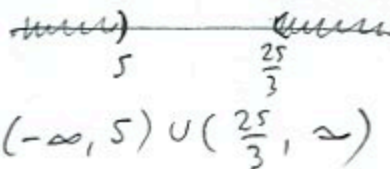 ) (
5 25/3
(-∞, 5) ∪ (25/3, ∞)